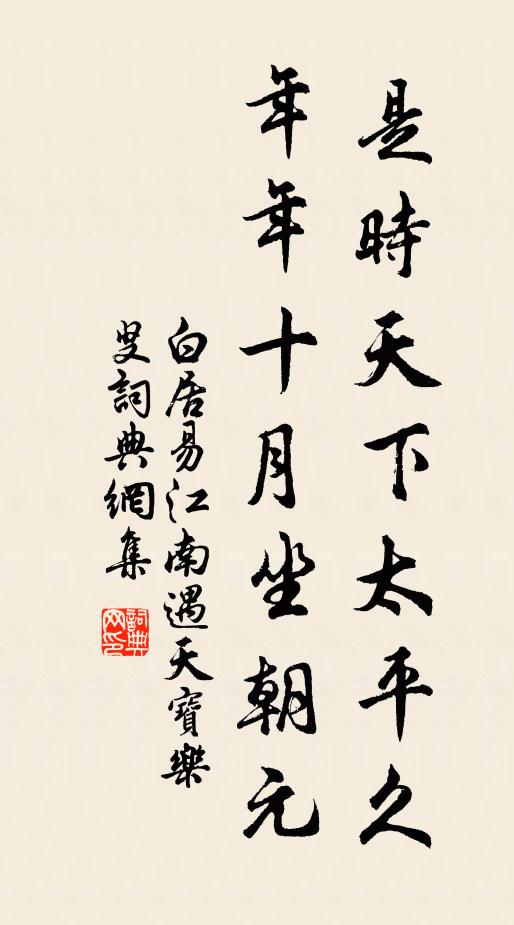 是時天下太平久
年年十月坐朝元
白居易江南遇天寶樂
叟詞典網集
詞典
网印